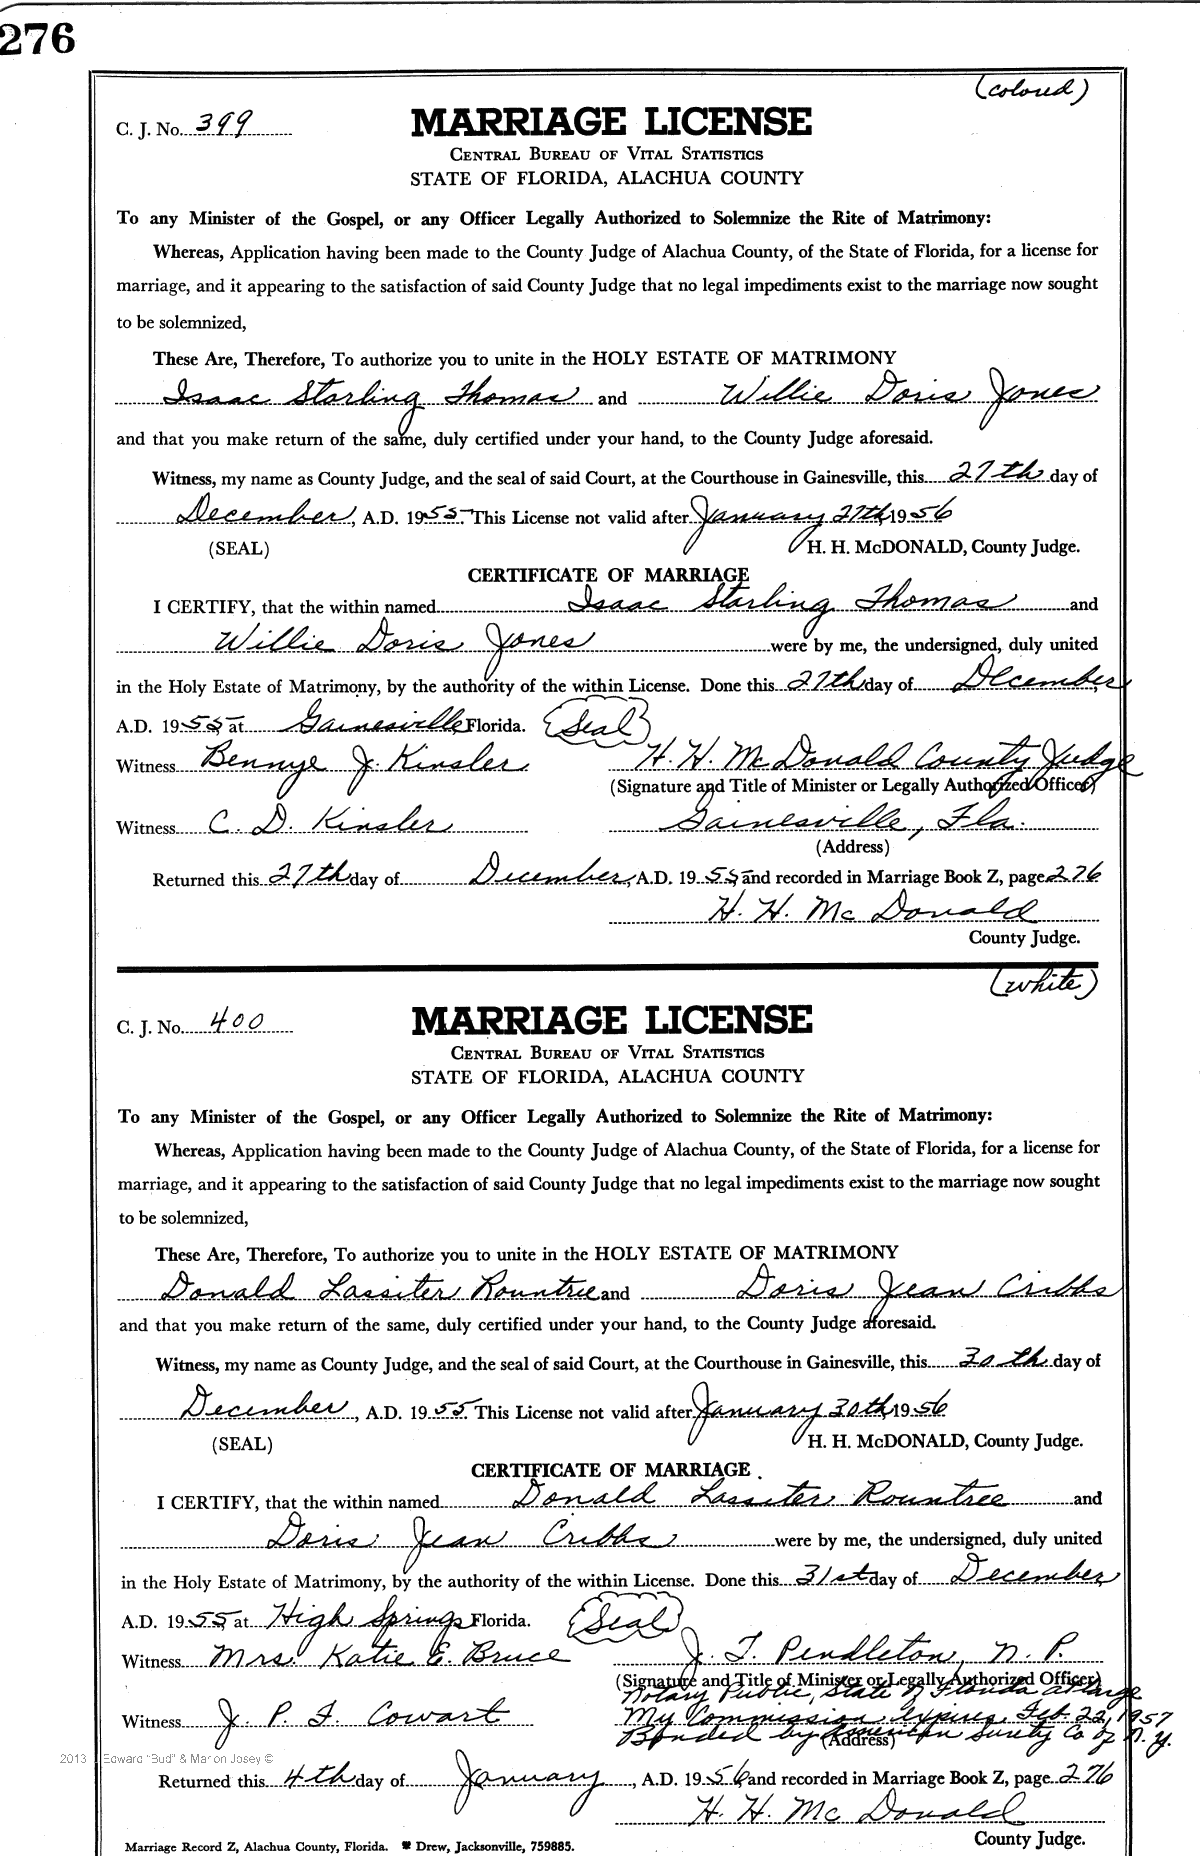 276
(colored)
C. J. No. 399
MARRIAGE LICENSE
CENTRAL BUREAU OF VITAL STATISTICS
STATE OF FLORIDA, ALACHUA COUNTY
To any Minister of the Gospel, or any Officer Legally Authorized to Solemnize the Rite of Matrimony:
Whereas, Application having been made to the County Judge of Alachua County, of the State of Florida, for a license for
marriage, and it appearing to the satisfaction of said County Judge that no legal impediments exist to the marriage now sought
to be solemnized,
These Are, Therefore, To authorize you to unite in the HOLY ESTATE OF MATRIMONY
Isaac Starling Thomas and Willie Doris Jones
and that you make return of the same, duly certified under your hand, to the County Judge aforesaid.
Witness, my name as County Judge, and the seal of said Court, at the Courthouse in Gainesville, this 27th day of
December, A.D. 1955. This License not valid after January 27th, 1956
(SEAL) H. H. McDONALD, County Judge.
CERTIFICATE OF MARRIAGE
I CERTIFY, that the within named Isaac Starling Thomas and
Willie Doris Jones were by me, the undersigned, duly united
in the Holy Estate of Matrimony, by the authority of the within License. Done this 27th day of December,
A.D. 1955, at Gainesville Florida. (Seal)
Witness Bennye J. Kinsler. H. H. McDonald County Judge
(Signature and Title of Minister or Legally Authorized Officer)
Witness C. D. Kinsler Gainesville, Fla.
(Address)
Returned this 27th day of December, A.D. 1955, and recorded in Marriage Book Z, page 276
H. H. McDonald
County Judge.
(white)
C. J. No. 400
MARRIAGE LICENSE
CENTRAL BUREAU OF VITAL STATISTICS
STATE OF FLORIDA, ALACHUA COUNTY
To any Minister of the Gospel, or any Officer Legally Authorized to Solemnize the Rite of Matrimony:
Whereas, Application having been made to the County Judge of Alachua County, of the State of Florida, for a license for
marriage, and it appearing to the satisfaction of said County Judge that no legal impediments exist to the marriage now sought
to be solemnized,
These Are, Therefore, To authorize you to unite in the HOLY ESTATE OF MATRIMONY
Donald Lassiter Rountree and Doris Jean Cribbs
and that you make return of the same, duly certified under your hand, to the County Judge aforesaid.
Witness, my name as County Judge, and the seal of said Court, at the Courthouse in Gainesville, this 30th day of
December, A.D. 1955. This License not valid after January 30th, 1956
(SEAL) H. H. McDONALD, County Judge.
CERTIFICATE OF MARRIAGE
I CERTIFY, that the within named Donald Lassiter Rountree and
Doris Jean Cribbs were by me, the undersigned, duly united
in the Holy Estate of Matrimony, by the authority of the within License. Done this 31st day of December,
A.D. 1955, at High Springs Florida. (Seal)
Witness Mrs. Katie E. Bruce J. T. Pendleton, N. P.
(Signature and Title of Minister or Legally Authorized Officer)
Notary Public, State of Florida at large
Witness J. P. T. Cowart My Commission expires Feb. 22, 1957
Bonded by American Surety Co of N. Y.
(Address)
2013 Edward "Bud" & Marion Josey ©
Returned this 4th day of January, A.D. 1956 and recorded in Marriage Book Z, page 276
H. H. McDonald
County Judge.
Marriage Record Z, Alachua County, Florida. Drew, Jacksonville, 759885.